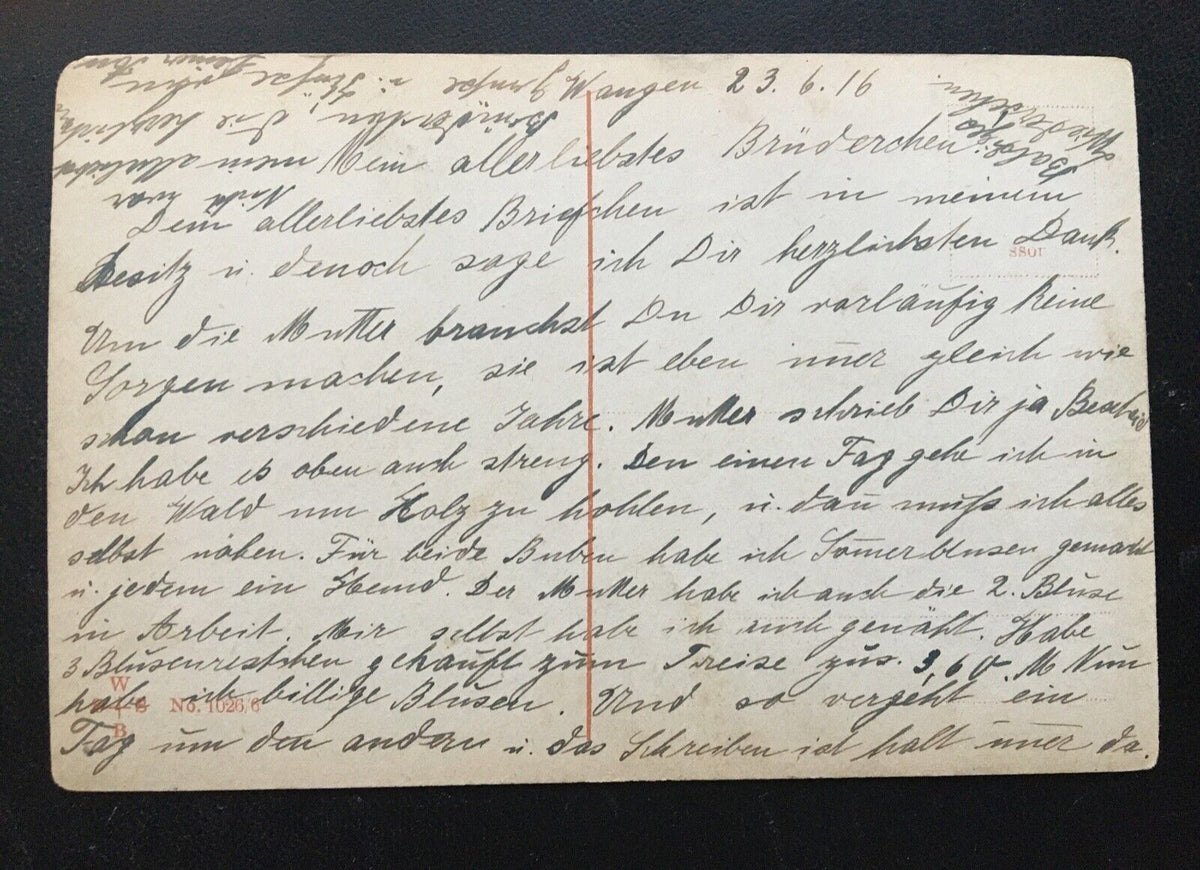 Wangen 23.6.16
Mein allerliebstes Brüderchen
Dein allerliebstes Briefchen ist in meinem
Besitz u. denoch sage ich Dir herzlichsten Dank.
Um die Mutter brauchst Du Dir vorläufig keine
Sorgen machen, sie ist eben im̄er gleich wie
schon verschiedene Jahre. Mutter schrieb Dir ja Bescheid
Ich habe es eben auch streng. Den einen Tag gehe ich in
den Wald um Holz zu hohlen, u. dan̄ muß ich alles
selbst nähen. Für beide Buben habe ich Som̄erblusen gemacht
u. jedem ein Hemd. Der Mutter habe ich auch die 2. Bluse
in Arbeit. Mir selbst habe ich auch genäht. Habe
3 Blusenrestchen gekauft zum Preise zus. 3,60 M Nun
habe ich billige Blusen. Und so vergeht ein
Tag um den andern u. das Schreiben ist halt im̄er da.
Nicht war
mein allerliebstes
Brüderchen, die herzlichsten
Grüße u.
Deiner
Baldiges
Wiedersehen.
W
S B
No. 1026/6
1088